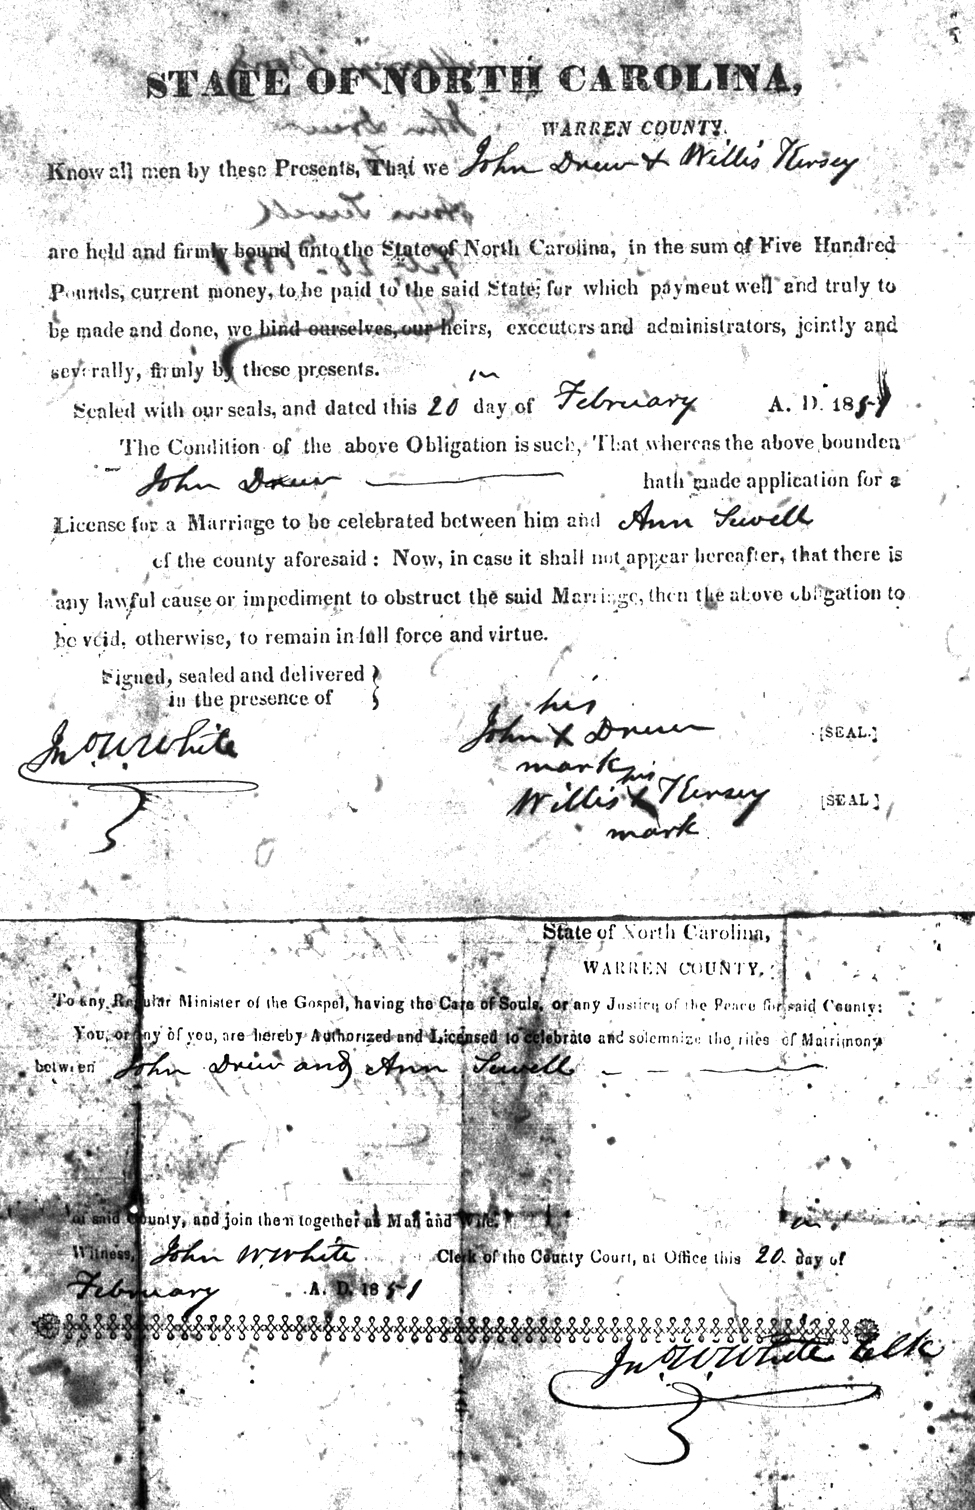 STATE OF NORTH CAROLINA,
WARREN COUNTY.
Know all men by these Presents, That we John Drew & Willis Kersey
are held and firmly bound unto the State of North Carolina, in the sum of Five Hundred
Pounds, current money, to be paid to the said State; for which payment well and truly to
be made and done, we bind ourselves, our heirs, executors and administrators, jointly and
severally, firmly by these presents.
Sealed with our seals, and dated this 20 day of February A. D. 1851
The Condition of the above Obligation is such, That whereas the above bounden
John Drew hath made application for a
License for a Marriage to be celebrated between him and Ann Sewell
of the county aforesaid: Now, in case it shall not appear hereafter, that there is
any lawful cause or impediment to obstruct the said Marriage, then the above obligation to
be void, otherwise, to remain in full force and virtue.
Signed, sealed and delivered
in the presence of
his
Jno. W. White John X Drew [SEAL.]
mark
his
Willis X Kersey [SEAL]
mark
State of North Carolina,
WARREN COUNTY.
To any Regular Minister of the Gospel, having the Care of Souls, or any Justice of the Peace for said County:
You, or any of you, are hereby Authorized and Licensed to celebrate and solemnize the rites of Matrimony
between John Drew and Ann Sewell
of said County, and join them together as Man and Wife.
Witness, John W. White Clerk of the County Court, at Office this 20. day of
February A. D. 1851
Jno. W. White Clk